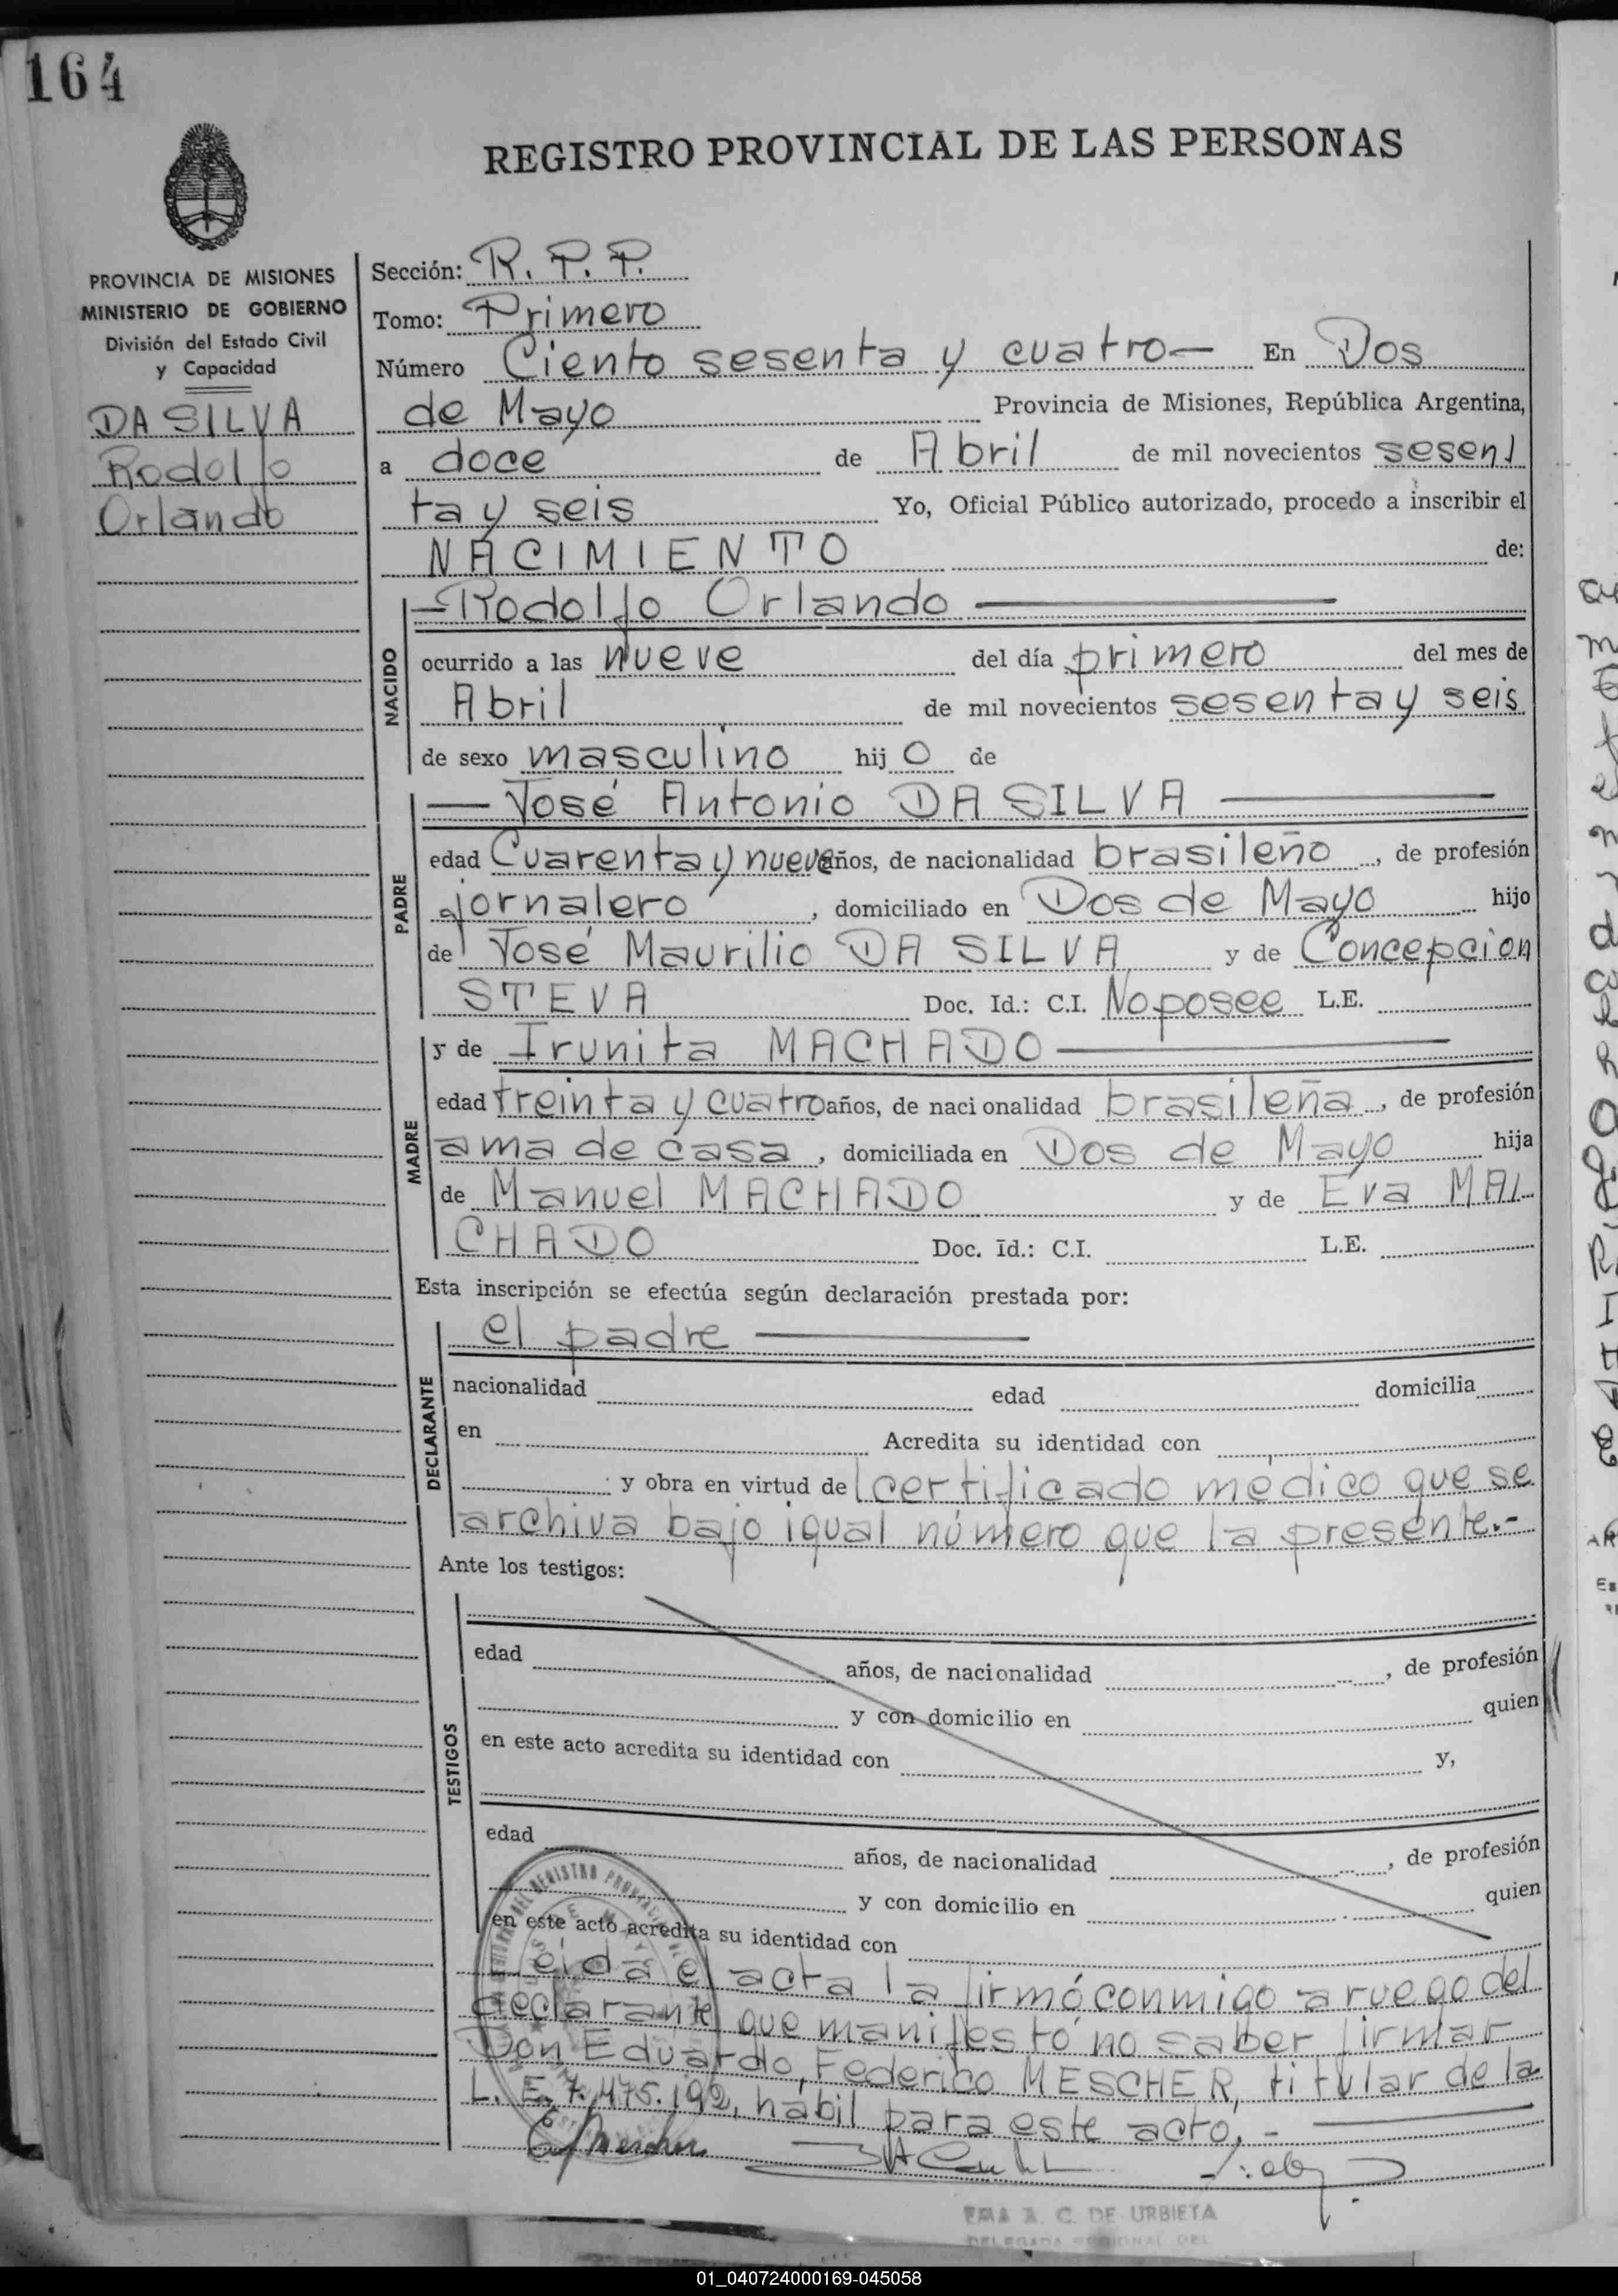 164
REGISTRO PROVINCIAL DE LAS PERSONAS
PROVINCIA DE MISIONES
MINISTERIO DE GOBIERNO
División del Estado Civil
y Capacidad
DA SILVA
Rodolfo
Orlando
Sección: R. P. P.
Tomo: Primero
Número Ciento sesenta y cuatro— En Dos
de Mayo Provincia de Misiones, República Argentina,
a doce de Abril de mil novecientos sesen
ta y seis Yo, Oficial Público autorizado, procedo a inscribir el
NACIMIENTO de:
NACIDO
— Rodolfo Orlando —
ocurrido a las nueve del día primero del mes de
Abril de mil novecientos sesenta y seis
de sexo masculino hijo de
PADRE
— José Antonio DA SILVA —
edad Cuarenta y nueve años, de nacionalidad brasileño, de profesión
jornalero, domiciliado en Dos de Mayo hijo
de José Maurilio DA SILVA y de Concepcion
STEVA Doc. Id.: C.I. No posee L.E.
MADRE
y de Irunita MACHADO —
edad treinta y cuatro años, de nacionalidad brasileña, de profesión
ama de casa, domiciliada en Dos de Mayo hija
de Manuel MACHADO y de Eva MA
CHADO Doc. Id.: C.I. L.E.
Esta inscripción se efectúa según declaración prestada por:
DECLARANTE
el padre —
nacionalidad edad domicilia
en Acredita su identidad con
y obra en virtud del certificado médico que se
archiva bajo igual número que la presente.-
Ante los testigos:
TESTIGOS
edad años, de nacionalidad , de profesión
y con domicilio en quien
en este acto acredita su identidad con y,
edad años, de nacionalidad , de profesión
y con domicilio en quien
en este acto acredita su identidad con
Leída el acta la firmó conmigo a ruego del
declarante que manifestó no saber firmar
Don Eduardo, Federico MESCHER, titular de la
L. E. 7.475.192, hábil para este acto.-
EMA A. C. DE URBIETA
DELEGADA REGIONAL DEL
01_040724000169-045058